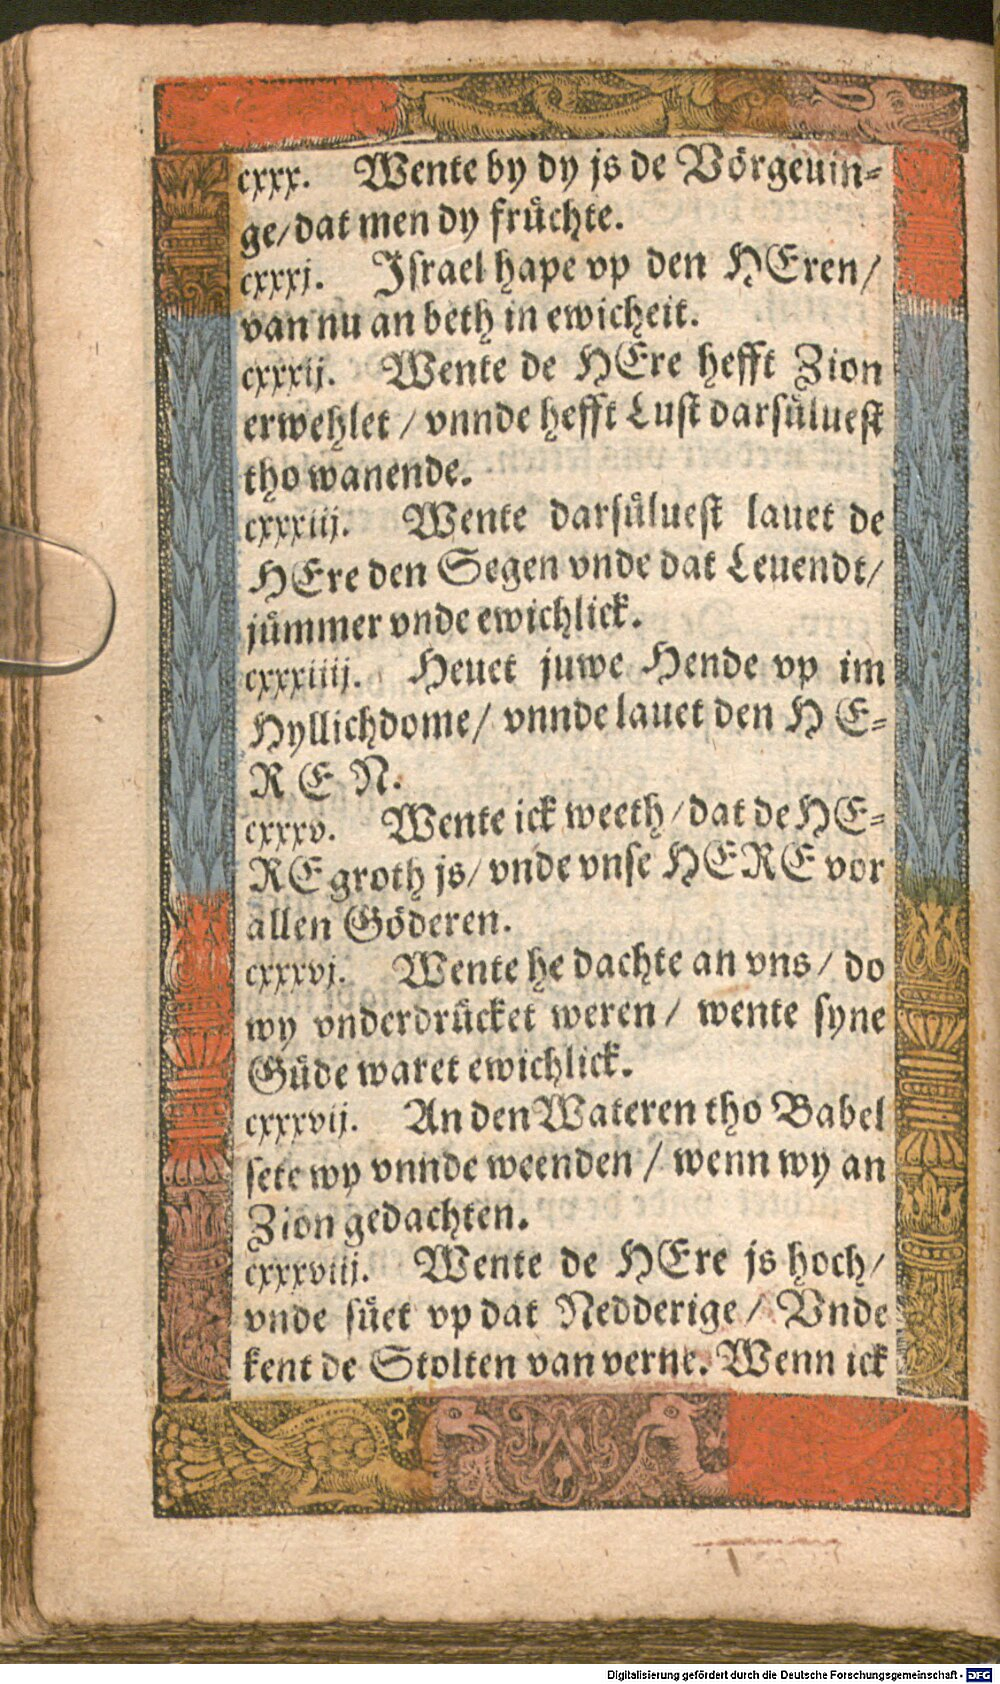 cxxx. Wente by dy js de Vörgeuin-
ge/ dat men dy fruͤchte.
cxxxj. Jsrael hape vp den HEren/
van nu an beth in ewicheit.
cxxxij. Wente de HEre hefft Zion
erwehlet / vnnde hefft Lust darsuͤluest
tho wanende.
cxxxiij. Wente darsuͤluest lauet de
HEre den Segen vnde dat Leuendt/
juͤmmer vnde ewichlick.
cxxxiiij. Heuet juwe Hende vp im
Hyllichdome/ vnnde lauet den H E-
R E N.
cxxxv. Wente ick weeth / dat de HE-
RE groth js/ vnde vnse HERE vor
allen Göderen.
cxxxvj. Wente he dachte an vns / do
wy vnderdruͤcket weren / wente syne
Guͤde waret ewichlick.
cxxxvij. An den Wateren tho Babel
sete wy vnnde weenden / wenn wy an
Zion gedachten.
cxxxviij. Wente de HEre js hoch/
vnde suͤet vp dat Nedderige / Vnde
kent de Stolten van verne. Wenn ick
Digitalisierung gefördert durch die Deutsche Forschungsgemeinschaft - DFG